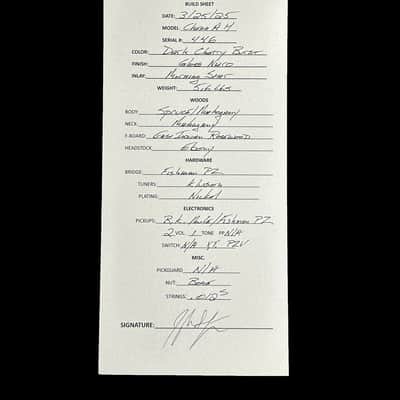 BUILD SHEET
DATE: 3/25/25
MODEL:
SERIAL #: 446
COLOR: Dark Cherry Burst
FINISH: Gloss Nitro
INLAY: Morning Star
WEIGHT: 5.6 LBS
WOODS
BODY: Spruce/Mahogany
NECK: Mahogany
F-BOARD: East Indian Rosewood
HEADSTOCK: Ebony
HARDWARE
BRIDGE: Fishman PZ
TUNERS: Kluson
PLATING: Nickel
ELECTRONICS
PICKUPS: /Fishman PZ
2 VOL 1 TONE PP N/A
SWITCH N/A
MISC.
PICKGUARD N/A
NUT: Bone
STRINGS: .012s
SIGNATURE: